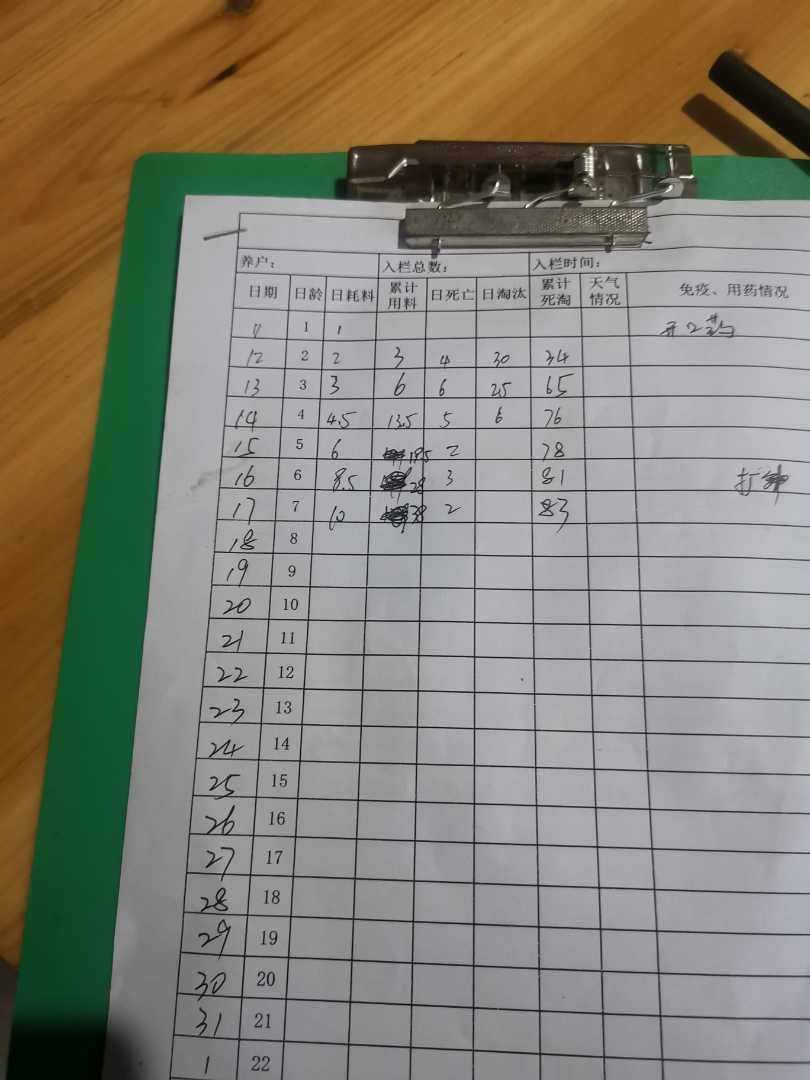 养户： 入栏总数： 入栏时间：
日期 日龄 日耗料 累计用料 日死亡 日淘汰 累计死淘 天气情况 免疫、用药情况
11 1 1
12 2 2 3 4 30 34
13 3 3 6 6 25 65
14 4 4.5 13.5 5 6 76
15 5 6 19.5 2 78
16 6 8.5 28 3 81 打
17 7 10 38 2 83
18 8
19 9
20 10
21 11
22 12
23 13
24 14
25 15
26 16
27 17
28 18
29 19
30 20
31 21
1 22